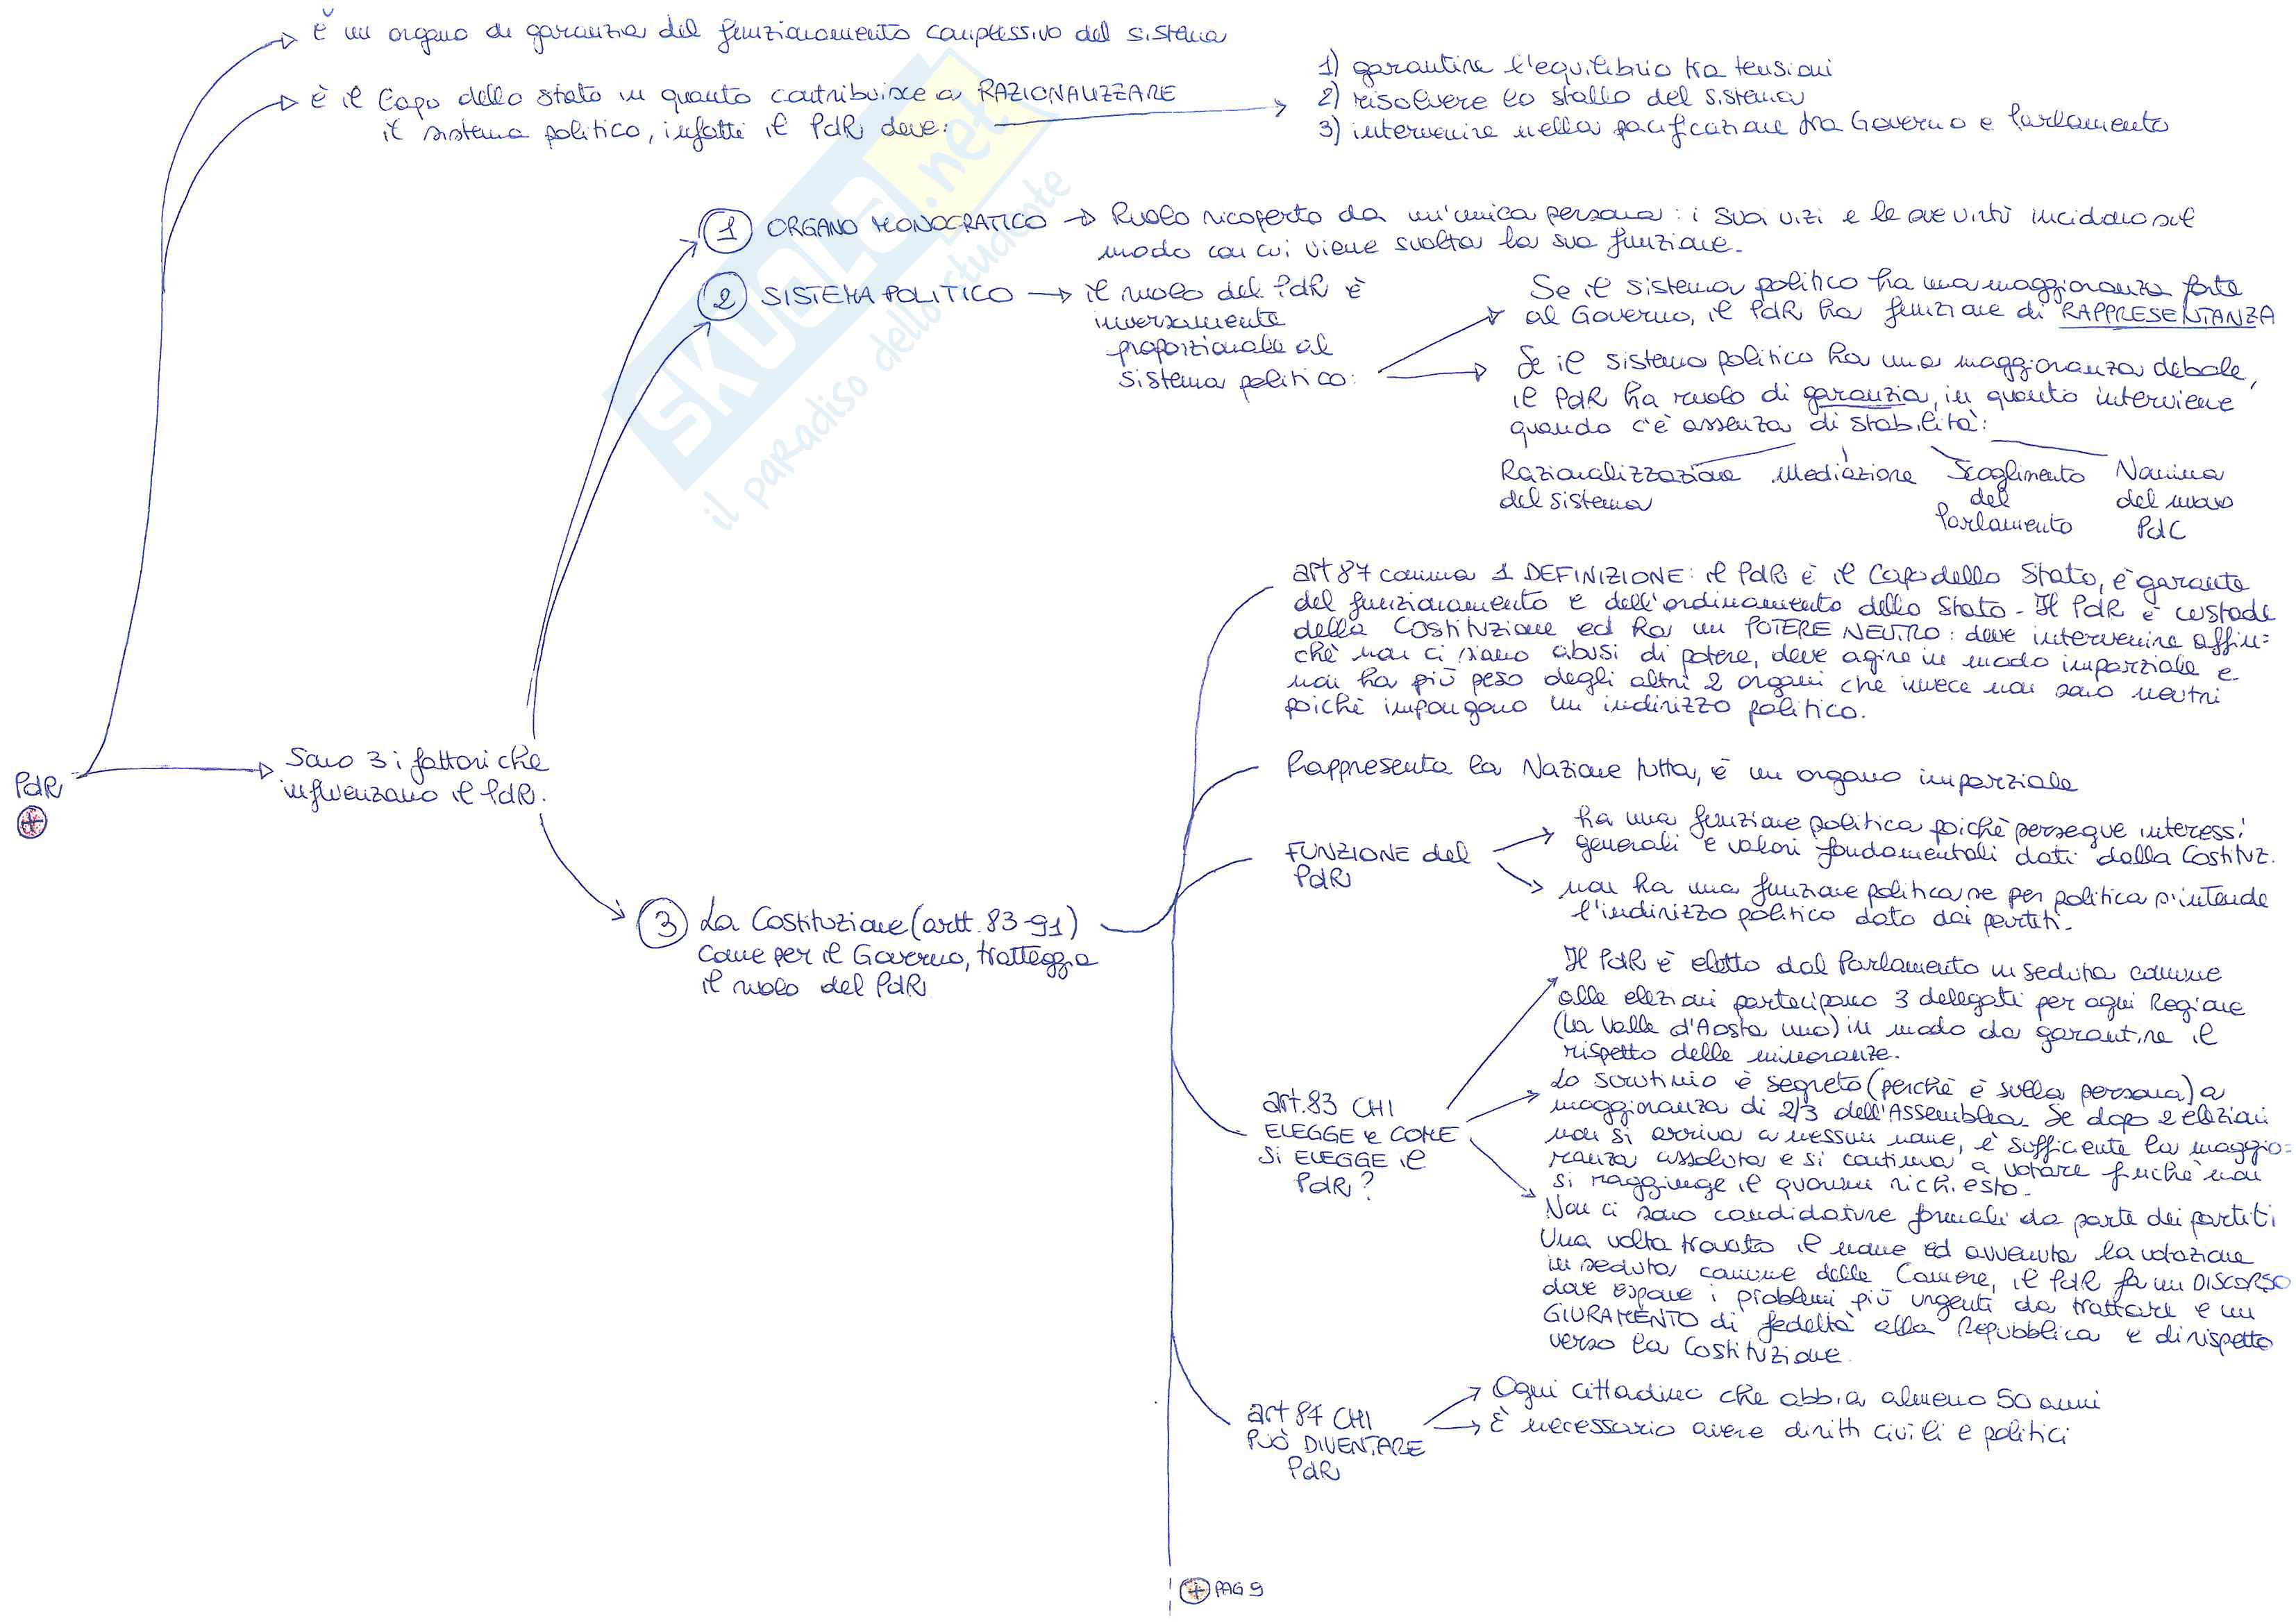 È un organo di garanzia del funzionamento complessivo del sistema
È il Capo dello Stato in quanto contribuisce a RAZIONALIZZARE
il sistema politico, infatti il PdR deve:
1) garantire l'equilibrio tra tensioni
2) risolvere lo stallo del sistema
3) intervenire nella pacificazione tra Governo e Parlamento
1 ORGANO MONOCRATICO → Ruolo ricoperto da un'unica persona: i suoi vizi e le sue virtù incidono sul
modo con cui viene svolta la sua funzione.
2 SISTEMA POLITICO → il ruolo del PdR è
inversamente
proporzionale al
sistema politico:
Se il sistema politico ha una maggioranza forte
al Governo, il PdR ha funzione di RAPPRESENTANZA
Se il sistema politico ha una maggioranza debole,
il PdR ha ruolo di garanzia, in quanto interviene
quando c'è assenza di stabilità:
Razionalizzazione
del sistema
Mediazione
Scioglimento
del
Parlamento
Nomina
del nuovo
PdC
SKUOLA.net
il paradiso dello studente
PdR
Sono 3 i fattori che
influenzano il PdR.
3 La Costituzione (artt. 83-91)
come per il Governo, tratteggia
il ruolo del PdR
art 87 comma 1 DEFINIZIONE: il PdR è il Capo dello Stato, è garante
del funzionamento e dell'ordinamento dello Stato - Il PdR è custode
della Costituzione ed ha un POTERE NEUTRO: deve intervenire affin=
chè non ci siano abusi di potere, deve agire in modo imparziale e
non ha più peso degli altri 2 organi che invece non sono neutri
poichè impongono un indirizzo politico.
Rappresenta la Nazione tutta, è un organo imparziale
FUNZIONE del
PdR
ha una funzione politica poichè persegue interessi
generali e valori fondamentali dati dalla Costituz.
non ha una funzione politica se per politica s'intende
l'indirizzo politico dato dai partiti.
art.83 CHI
ELEGGE e COME
si ELEGGE il
PdR?
Il PdR è eletto dal Parlamento in seduta comune
alle elezioni partecipano 3 delegati per ogni Regione
(la Valle d'Aosta uno) in modo da garantire il
rispetto delle minoranze.
Lo scrutinio è segreto (perchè è sulla persona) a
maggioranza di 2/3 dell'Assemblea. Se dopo 2 elezioni
non si arriva a nessun nome, è sufficiente la maggio=
ranza assoluta e si continua a votare finchè non
si raggiunge il quorum richiesto.
Non ci sono candidature formali da parte dei partiti
Una volta trovato il nome ed avvenuta la votazione
in seduta comune delle Camere, il PdR fa un DISCORSO
dove espone i problemi più urgenti da trattare e un
GIURAMENTO di fedeltà alla Repubblica e di rispetto
verso la Costituzione.
art 87 CHI
PUÒ DIVENTARE
PdR
Ogni cittadino che abbia almeno 50 anni
È necessario avere diritti civili e politici
PAG 9